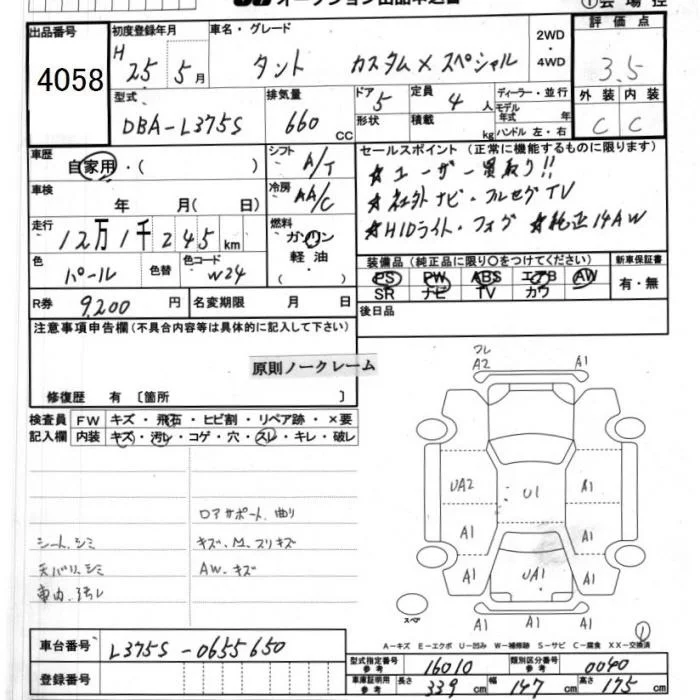 出品番号
4058
初度登録年月
H 25 5月
車名・グレード
タント カスタムX スペシャル
2WD
・
4WD
評価点
3.5
型式
DBA-L375S
排気量
660 CC
ドア 5
形状
定員 4 人
積載 kg
ディーラー・並行
モデル
年式 年
ハンドル 左・右
外装 内装
C C
車歴
自家用・( )
シフト A/T
車検
年 月( 日)
冷房 AA/C
走行
12万1千245 km
燃料
ガソリン
軽油
・
色
パール
色替
色コード
W24
R券 9,200 円
名変期限 月 日
セールスポイント(正常に機能するものに限ります)
☆ユーザー買取り!!
☆社外ナビ・フルセグTV
☆HIDライト・フォグ ☆純正14AW
装備品(純正品に限り○をつけてください)
PS PW ABS エアB AW
SR ナビ TV カワ
新車保証書
有・無
後日品
注意事項申告欄(不具合内容等は具体的に記入して下さい)
原則ノークレーム
修復歴 有〔箇所 〕
検査員 FW キズ・飛石・ヒビ割・リペア跡・×要
記入欄 内装 キズ・汚レ・コゲ・穴・スレ・キレ・破レ
ロアサポート曲り
シート、シミ
キズ、M、スリキズ
天バリ、シミ
AW、キズ
車内、汚レ
フレ
A2 A1
UA2 U1 A1
A1 A1
A1 UA1 A1
A1 A1
スペア
①
A-キズ E-エクボ U-凹み W-補修跡 S-サビ C-腐食 XX-交換済
車台番号 L375S-0655650
登録番号
型式指定番号
参考
16010
類別区分番号
参考
0040
車庫証明用
参考
長さ 339 cm 幅 147 cm 高さ 175 cm